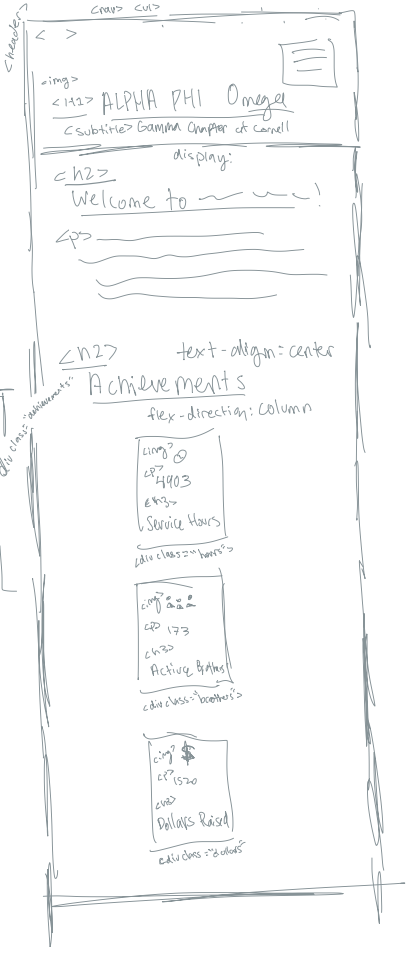 <header>
<nav> <ul>
< >
<img>
<H1> ALPHA PHI Omega
<subtitle> Gamma Chapter at Cornell
display:
<h2>
Welcome to !
<p>
<h2> text-align: center
Achievements
div class="achievements"
flex-direction: column
<img>
<p>
4903
<h3>
Service Hours
<div class="hours">
<img>
<p> 173
<h3>
Active Brothers
<div class="brothers">
<img> $
<p> 1520
<h3>
Dollars Raised
<div class="dollars">